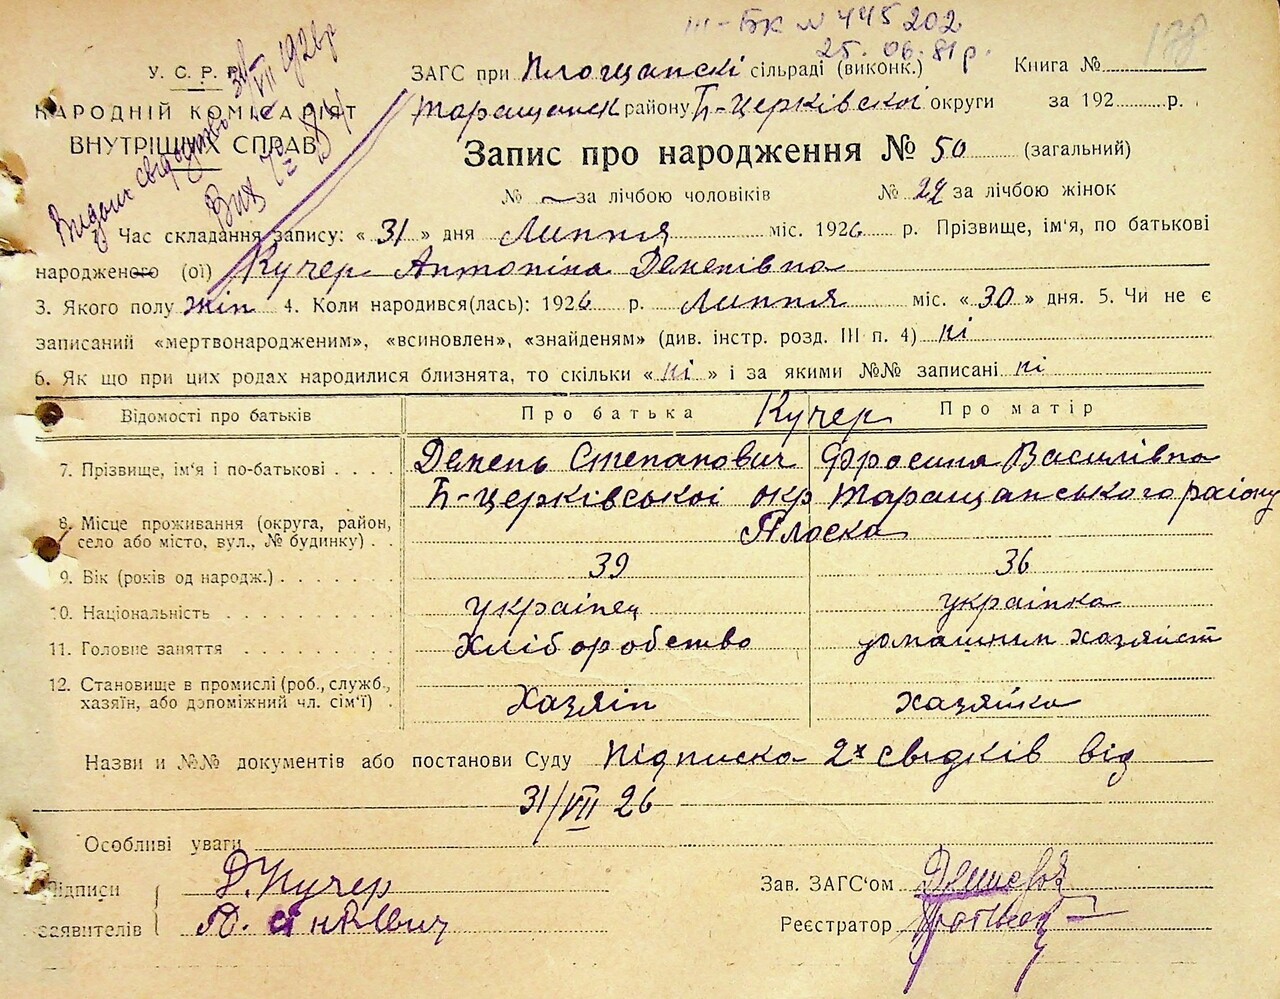 III-БК № 445202
25.06.81 р.
138
У. С. Р. Р.
НАРОДНІЙ КОМІСАРІЯТ
ВНУТРІШНІХ СПРАВ
Видано свідоцтво 31/VII 1926 р
ЗАГС при Площанскі сільраді (виконк.) Книга №
Таращанск району Б-Церківскої округи за 192 р.
Запис про народження № 50 (загальний)
№ — за лічбою чоловіків № 29 за лічбою жінок
Час складання запису: « 31 » дня Липня міс. 1926 р. Прізвище, ім'я, по батькові
народженого (ої) Кучер Антоніна Демепівна
3. Якого полу жін 4. Коли народився(лась): 1926 р. Липня міс. « 30 » дня. 5. Чи не є
записаний «мертвонародженим», «всиновлен», «знайденям» (див. інстр. розд. III п. 4) ні
6. Як що при цих родах народилися близнята, то скільки « ні » і за якими №№ записані ні
Відомості про батьків Про батька Кучер Про матір
7. Прізвище, ім'я і по-батькові Степанович Фросиня Василівна
8. Місце проживання (округа, район, Б-Церківської окр Таращанського району
село або місто, вул., № будинку) Плоска
9. Вік (років од народж.) 39 36
10. Національність українец українка
11. Головне заняття Хліборобство домашнин хазяйст
12. Становище в промислі (роб., служб.,
хазяїн, або допоміжний чл. сім'ї) Хазяін хазяйка
Назви и №№ документів або постанови Суду Підписка 2х свідків від
31/VII 26
Особливі уваги
Підписи Д. Кучер
заявителів
Зав. ЗАГС'ом
Реєстратор